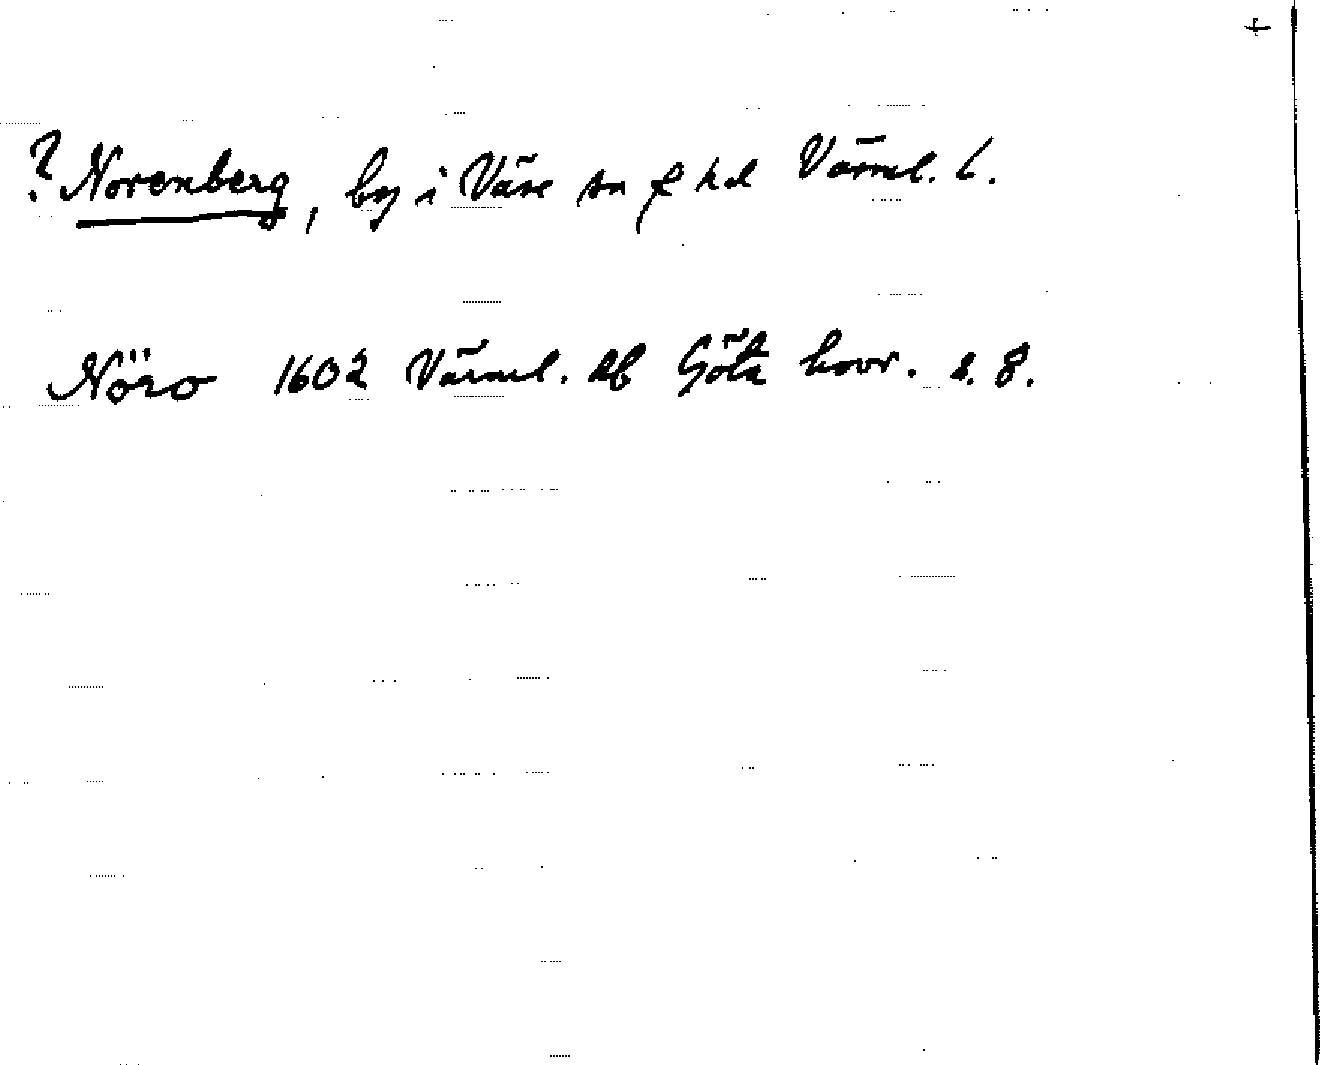 +
? Norenberg, by i Väse sn f hd Värml. L.
Nöro 1602 Värml. hb Göta hovr. s. 8.